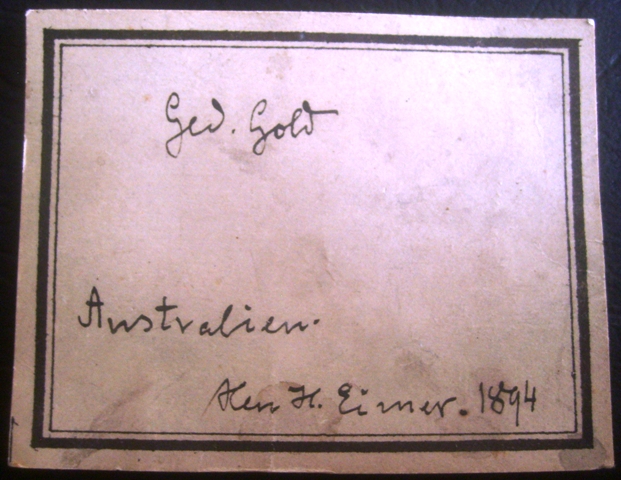 Ged. Gold
Australien.
Herr H. Eimer. 1894